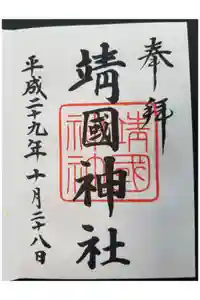 奉拝
靖國神社
靖国神社
平成二十九年十月二十八日